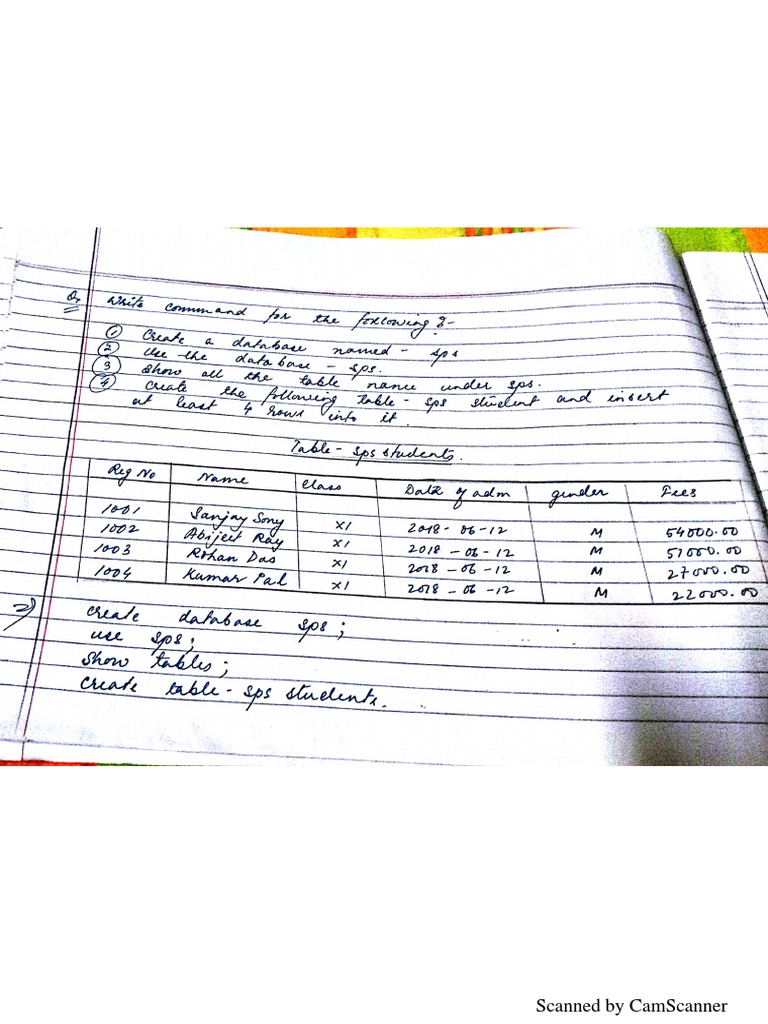 Q. Write command for the following :-
① Create a database named - sps
② Use the database - sps.
③ Show all the table name under sps.
④ Create the following table - sps student and insert
at least 4 rows into it.
Table - sps students.
Reg No Name Class Date of adm gender Fees
1001 Sanjay Sony X1 2018-06-12 M 54000.00
1002 Abijeet Ray X1 2018-06-12 M 51000.00
1003 Rohan Das X1 2018-06-12 M 27000.00
1004 Kumar Pal X1 2018-06-12 M 22000.00
create database sps;
use sps;
Show tables;
Create table - sps students.
Scanned by CamScanner